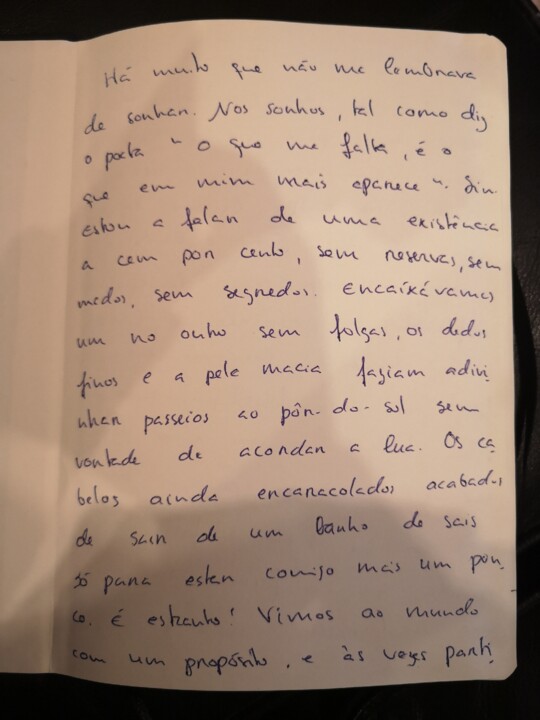 Há muito que não me lembrava
de sonhar. Nos sonhos, tal como diz
o poeta " O que me falta, é o
que em mim mais aparece ". Sim
estou a falar de uma existência
a cem por cento, sem reservas, sem
medos, sem segredos. Encaixávamos
um no outro sem folgas, os dedos
finos e a pele macia faziam adivi
nhar passeios ao pôr-do-sol sem
vontade de acordar a lua. Os ca
belos ainda encaracolados acabados
de sair de um banho de sais
só para estar comigo mais um pou
co. É estranho! Vimos ao mundo
com um propósito, e às vezes parti